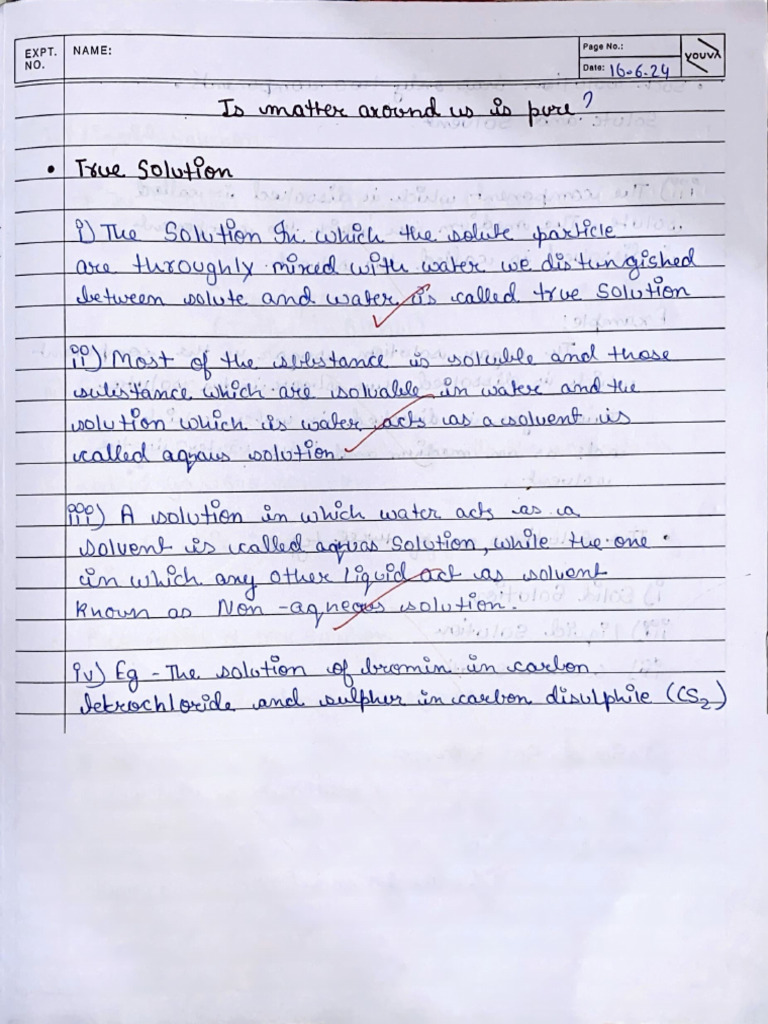 EXPT. NO.
NAME:
Page No.:
Date: 16-6-24
youva
Is matter around us is pure?
• True Solution
i) The Solution In which the solute particle
are throughly mixed with water we distungished
between solute and water, is called true Solution
ii) Most of the substance is soluble and those
substance which are solvable in water and the
solution which is water acts as a solvent is
called aquais solution.
iii) A solution in which water acts as a
solvent is called aquas Solution, while the one
in which any other liquid act as solvent
known as Non-aqneous solution.
iv) Eg - The solution of bromin in carbon
tetrochloride and sulpher in carbon disulphile (CS2)